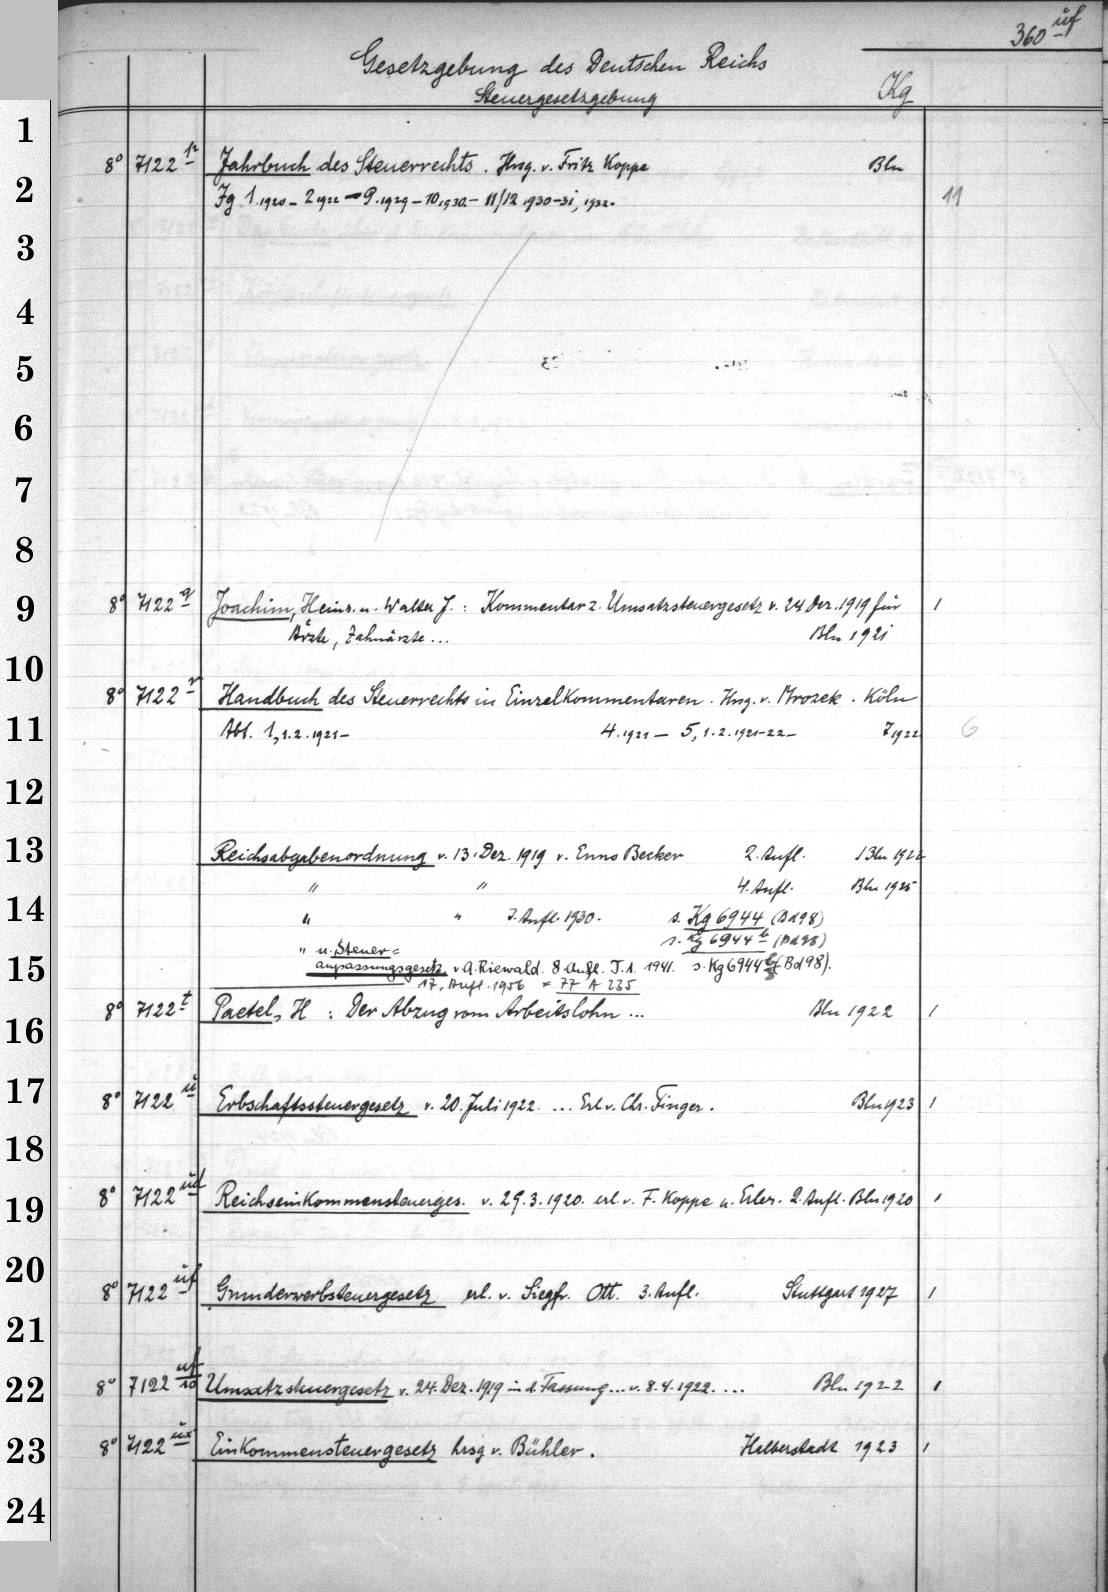 360 uf
Gesetzgebung des Deutschen Reichs
Steuergesetzgebung Kg
1
8° 7122 p Jahrbuch des Steuerrechts. Hrsg. v. Fritz Koppe Bln
2 Jg 1.1920 – 2 1922 – 9.1929 – 10.1930. – 11/12 1930–31, 1932. 11
3
4
5
6
7
8
9 8° 7122 q Joachim, Heinr. u. Walter J. : Kommentar z. Umsatzsteuergesetz v. 24 Dez. 1919 für 1
Ärzte, Zahnärzte ... Bln 1921
10
8° 7122 r Handbuch des Steuerrechts in Einzelkommentaren. Hrsg. v. Mrozek. Köln
11 Abt. 1, 1.2.1921– 4.1921 – 5, 1.2.1921-22 – 7 1922 6
12
13 Reichsabgabenordnung v. 13. Dez. 1919 v. Enno Becker 2. Aufl. Bln 1922
" " 4. Aufl. Bln 1925
14 " " 7. Aufl. 1930. s. Kg 6944 (Bd 98)
s. Kg 6944 b (Bd 98)
" u. Steuer=
15 anpassungsgesetz v A. Riewald. 8 Aufl. T. 1. 1941. s. Kg 6944 (Bd 98).
17. Aufl. 1956 = 77 A 235
8° 7122 t Paetel, H : Der Abzug vom Arbeitslohn ... Bln 1922 1
16
17 8° 7122 u Erbschaftssteuergesetz v. 20. Juli 1922. ... Erl. v. Chr. Finger. Bln 1923 1
18
19 8° 7122 ud Reichseinkommensteuerges. v. 29.3.1920. erl. v. F. Koppe u. Erler. 2. Aufl. Bln 1920 1
20
8° 7122 uf Grunderwerbsteuergesetz erl. v. Siegfr. Ott. 3. Aufl. Stuttgart 1927 1
21
22 8° 7122 uf/10 Umsatzsteuergesetz v. 24. Dez. 1919 in d. Fassung ... v. 8.4.1922. ... Bln 1922 1
23 8° 7122 ux Einkommensteuergesetz hrsg v. Bühler. Halberstadt 1923 1
24